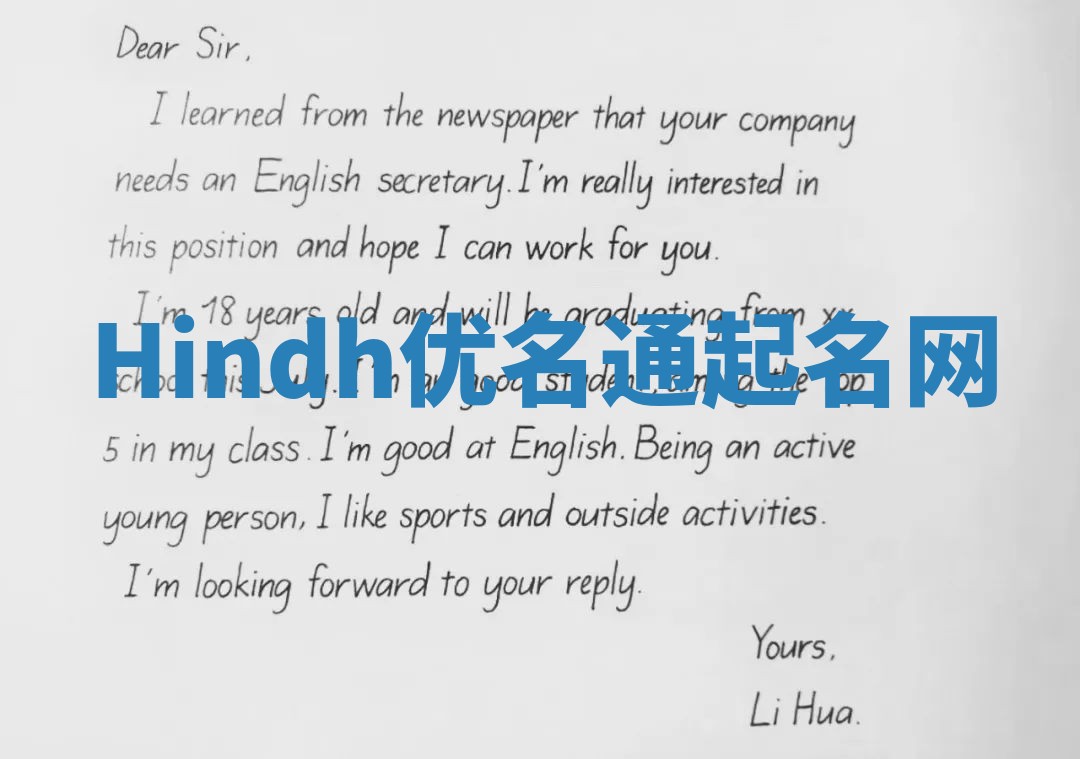 Dear Sir,
I learned from the newspaper that your company
needs an English secretary. I'm really interested in
this position and hope I can work for you.
I'm 18 years old and will be graduating from xx
Hindh优名通起名网
school this July. I'm a good student, among the top
5 in my class. I'm good at English. Being an active
young person, I like sports and outside activities.
I'm looking forward to your reply.
Yours,
Li Hua.